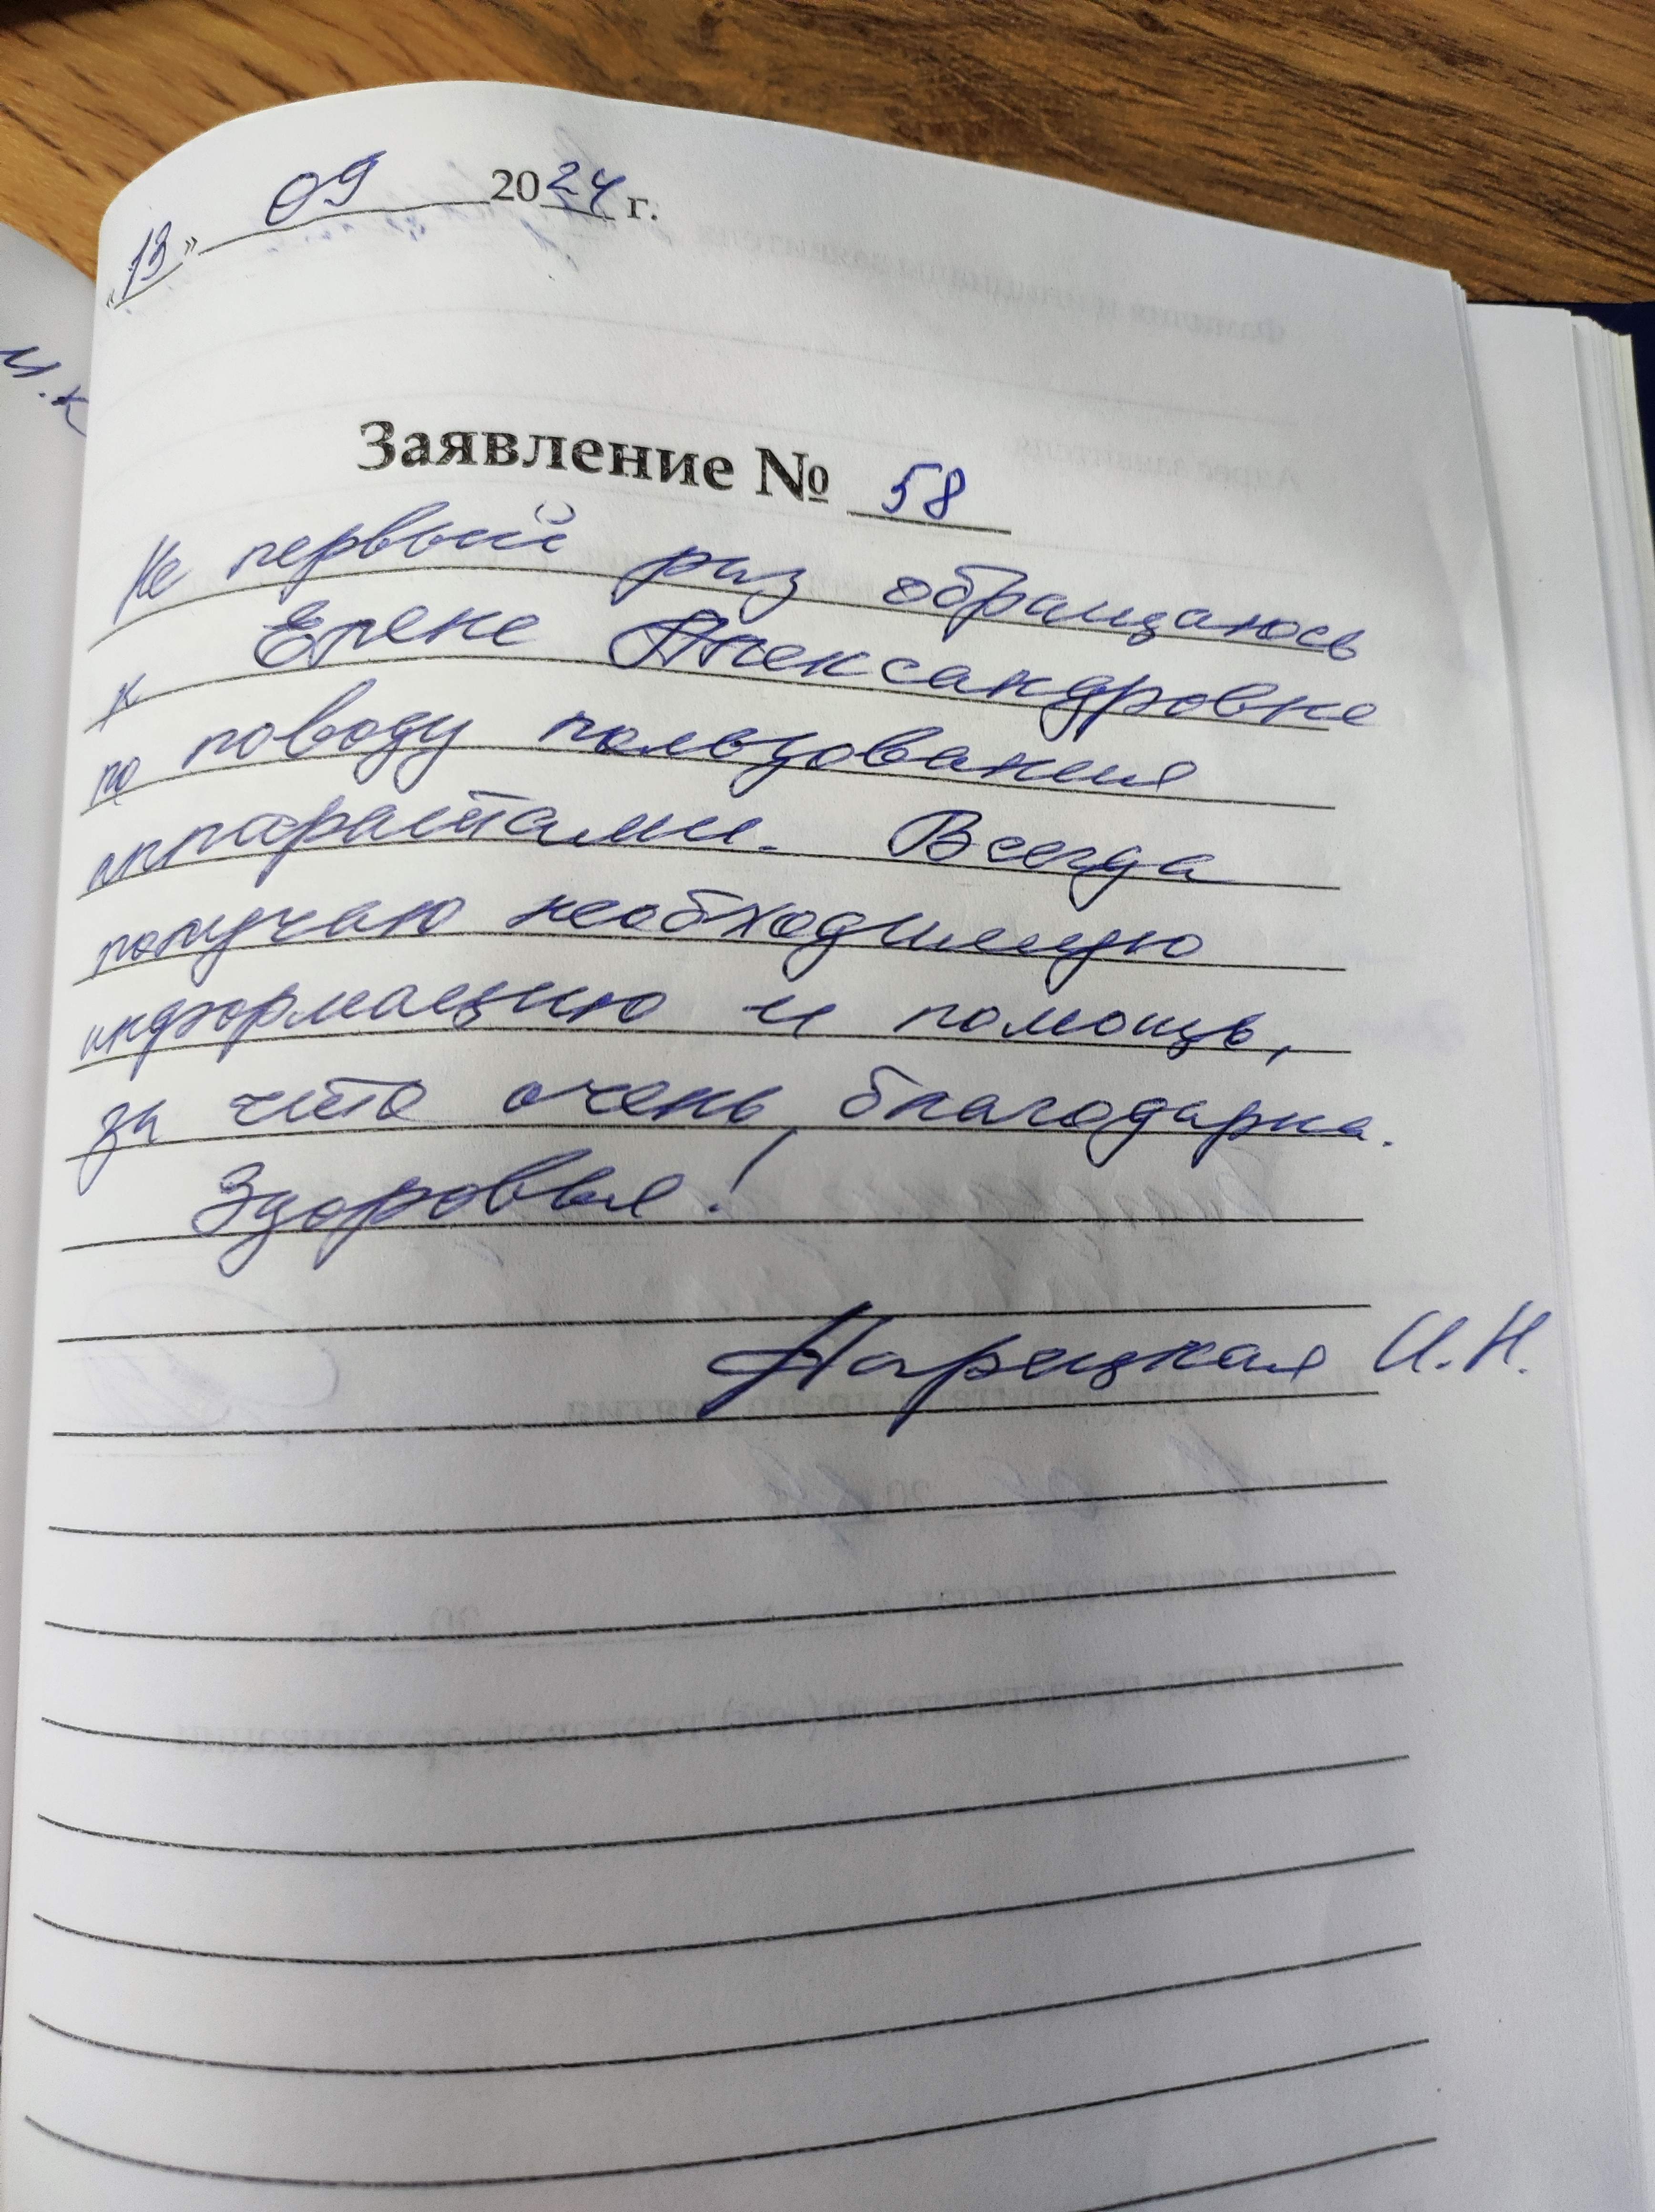 «13» 09 2024 г.
И.К
Заявление № 58
Не первый раз обращаюсь
к Елене Александровне
по поводу пользования
аппаратами. Всегда
получаю необходимую
информацию и помощь,
за что очень благодарна.
Здоровья!
И.Н.